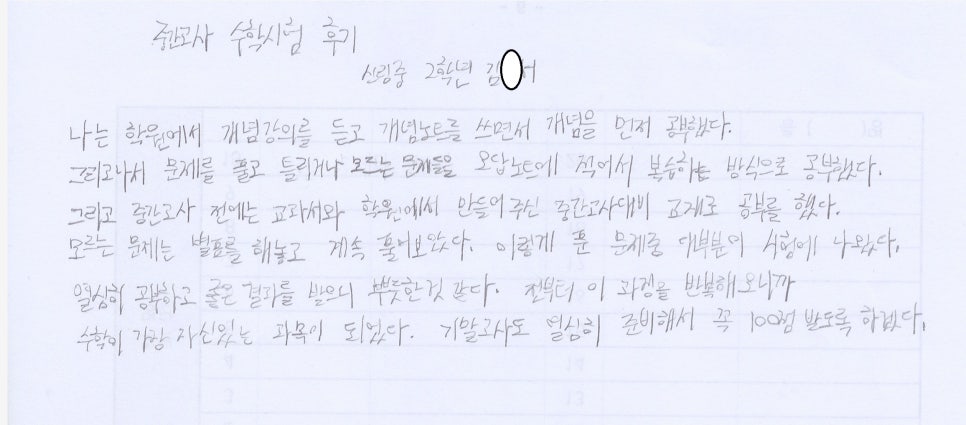 중간고사 수학시험 후기
신림중 2학년 김 서
나는 학원에서 개념강의를 듣고 개념노트를 쓰면서 개념을 먼저 공부했다.
그리고나서 문제를 풀고 틀리거나 모르는 문제들을 오답노트에 적어서 복습하는 방식으로 공부했다.
그리고 중간고사 전에는 교과서와 학원에서 만들어주신 중간고사대비 교재로 공부를 했다.
모르는 문제는 별표를 해놓고 계속 풀어보았다. 이렇게 푼 문제중 대부분이 시험에 나왔다.
열심히 공부하고 좋은 결과를 받으니 뿌듯한것 같다. 전부터 이 과정을 반복해오니까
수학이 가장 자신있는 과목이 되었다. 기말고사도 열심히 준비해서 꼭 100점 받도록 하겠다.